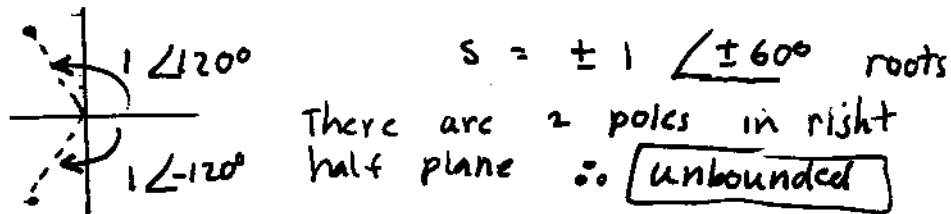 1 ∠120°
1 ∠-120°
s = ± 1 ∠±60° roots
There are 2 poles in right
half plane ∴ unbounded